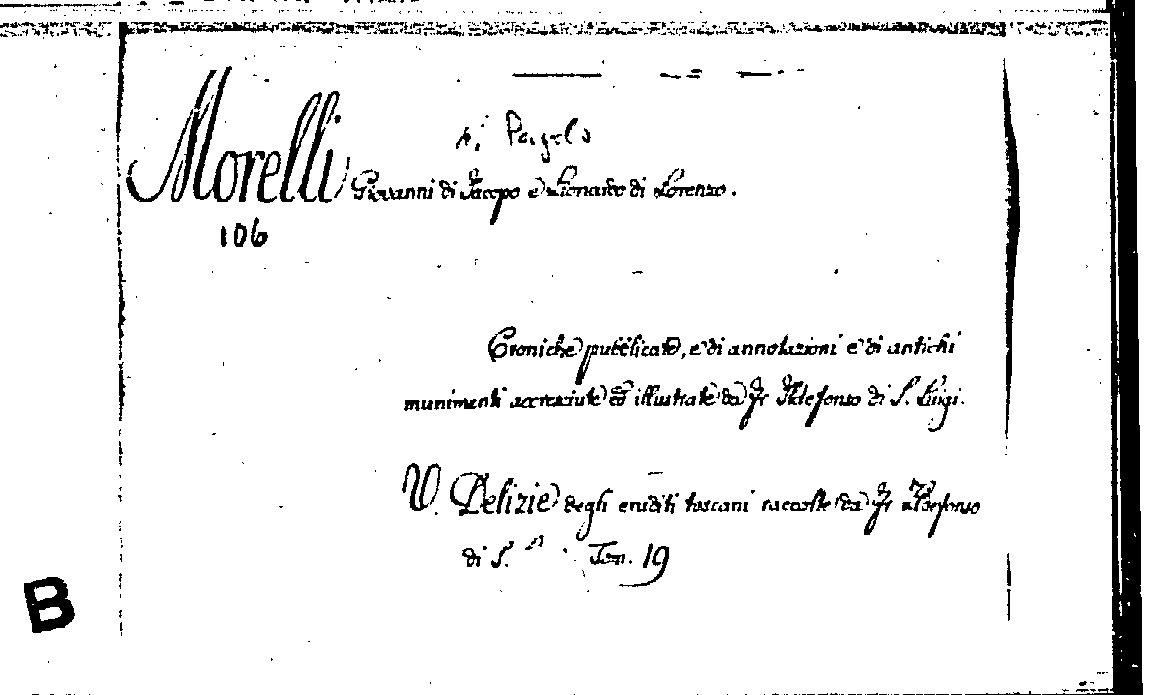 di Pagolo
Morelli Giovanni di Jacopo e Lionardo di Lorenzo.
106
Croniche pubblicate, e di annotazioni e di antichi
munimenti accresciute ed illustrate da Fr Ildefonso di S. Luigi.
V. Delizie degli eruditi toscani raccolte da Fr Ildefonso
di S. Tom. 19
B